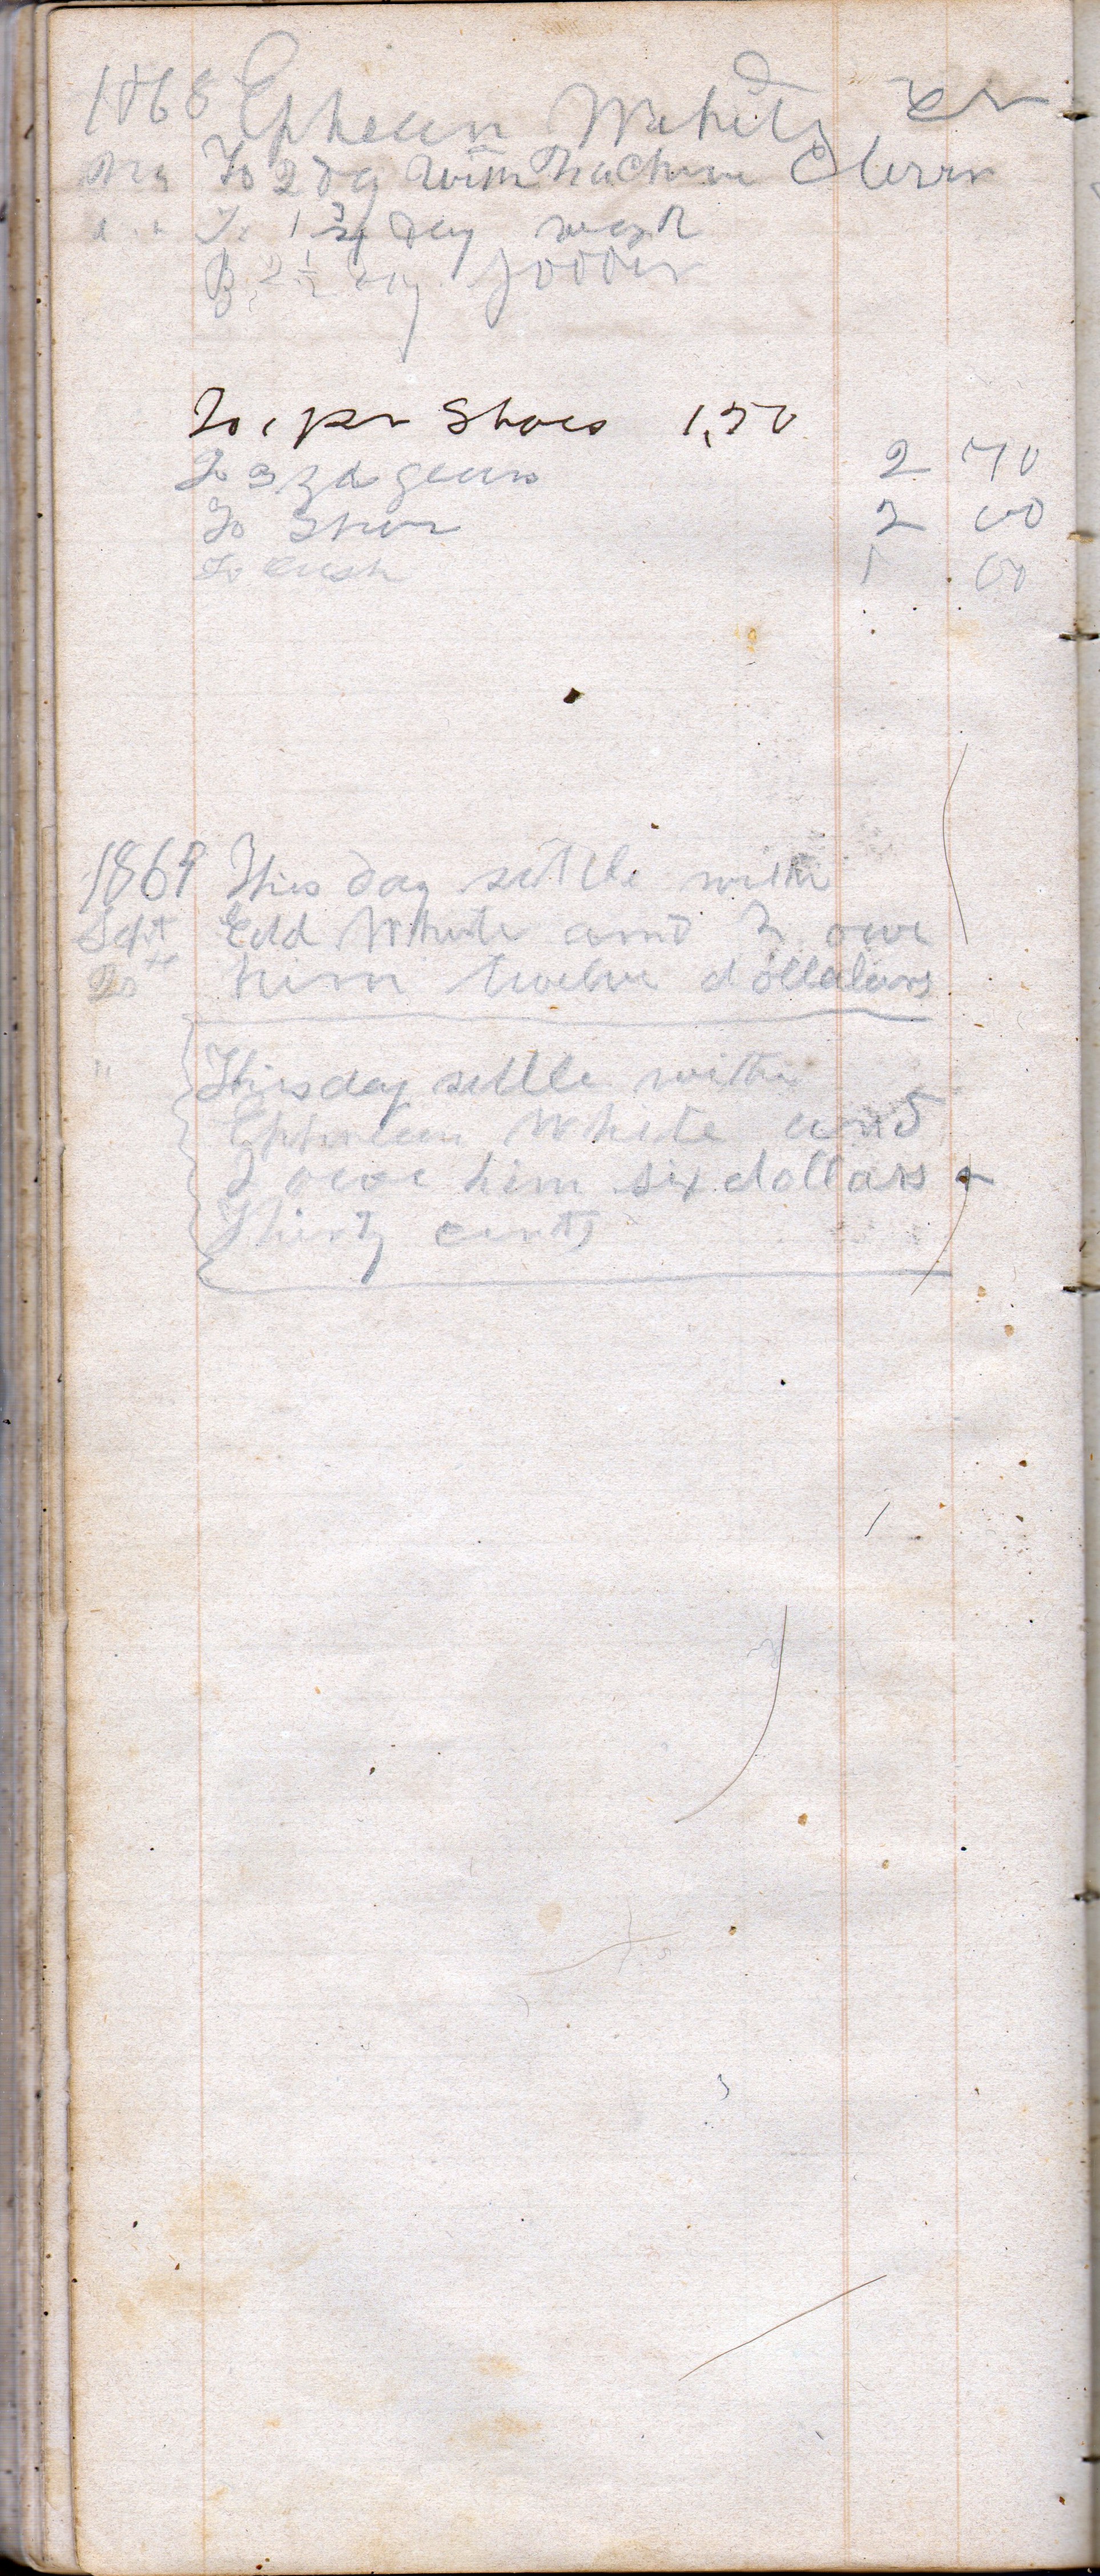 1868 Ephean White Dr
To 2 day With Machine
To 1 3/4 day work
By 2 1/2 day fodder
To 1 pr Shoes 1,50
To 9 yd jeans 2 70
To Shoes 2 00
To cash 1 00
1869 This day settle with
Sept Edd White and I owe
him twelve dollalars
" This day settle with
Ephream White and
I owe him six dollars +
thirty cents